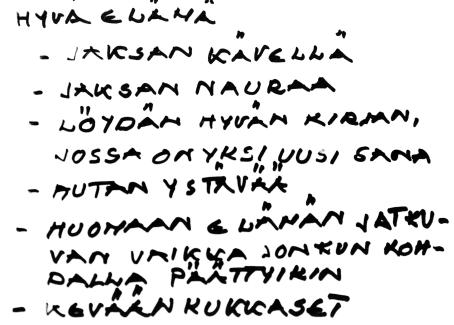 HYVÄ ELÄMÄ
- JAKSAN KÄVELLÄ
- JAKSAN NAURAA
- LÖYDÄN HYVÄN KIRJAN,
JOSSA ON YKSI UUSI SANA
- AUTAN YSTÄVÄÄ
- HUOMAAN ELÄMÄN JATKU-
VAN VAIKKA JONKUN KOH-
DALLA PÄÄTTYIKIN
- KEVÄÄN KUKKASET